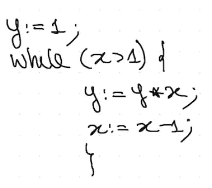 y:=1;
while (x>1) {
y:=y*x;
x:=x-1;
}